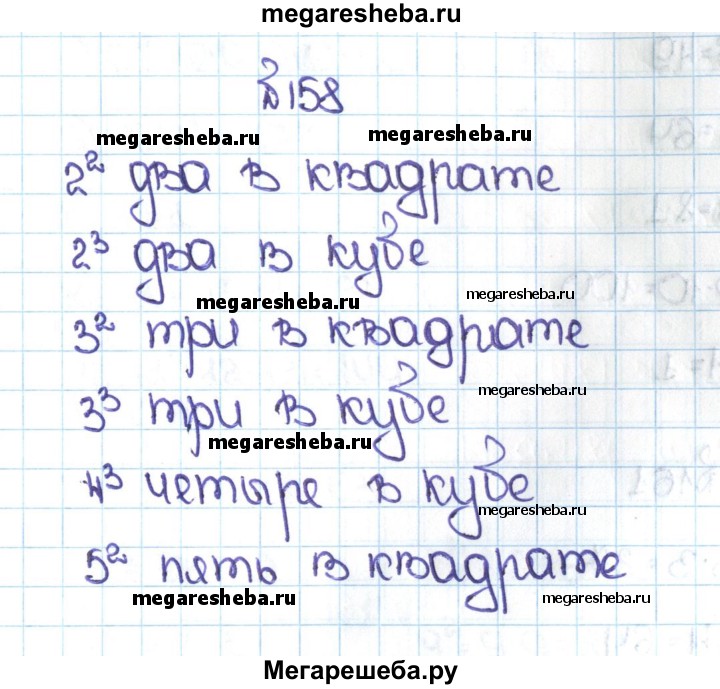 megaresheba.ru
№158
megaresheba.ru megaresheba.ru
2² два в квадрате
2³ два в кубе
megaresheba.ru megaresheba.ru
3² три в квадрате
megaresheba.ru
3³ три в кубе
megaresheba.ru
4³ четыре в кубе
megaresheba.ru
5² пять в квадрате
megaresheba.ru megaresheba.ru
Мегарешеба.ру